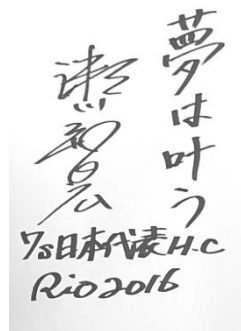 夢は叶う
瀬川智広
7s日本代表H.C
Rio2016